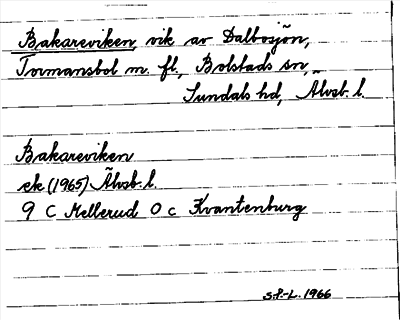 Bakareviken, vik av Dalbosjön,
Tormansbol m. fl., Bolstads sn,
Sundals hd, Älvsb. l.
Bakareviken
ek (1965) Älvsb. l.
9 C Mellerud 0 c Kvantenburg
S.P.-L. 1966